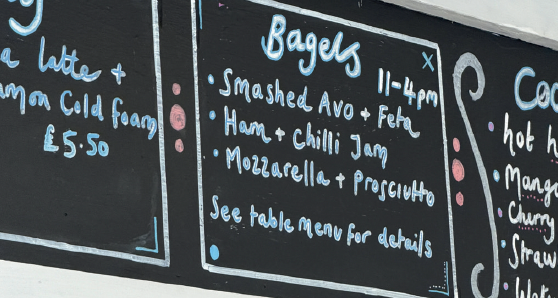 a latte +
Cold foam
£5.50
Bagels
11-4pm
Smashed Avo + Feta
Ham + Chilli Jam
Mozzarella + Prosciutto
See table menu for details
hot
Cherry